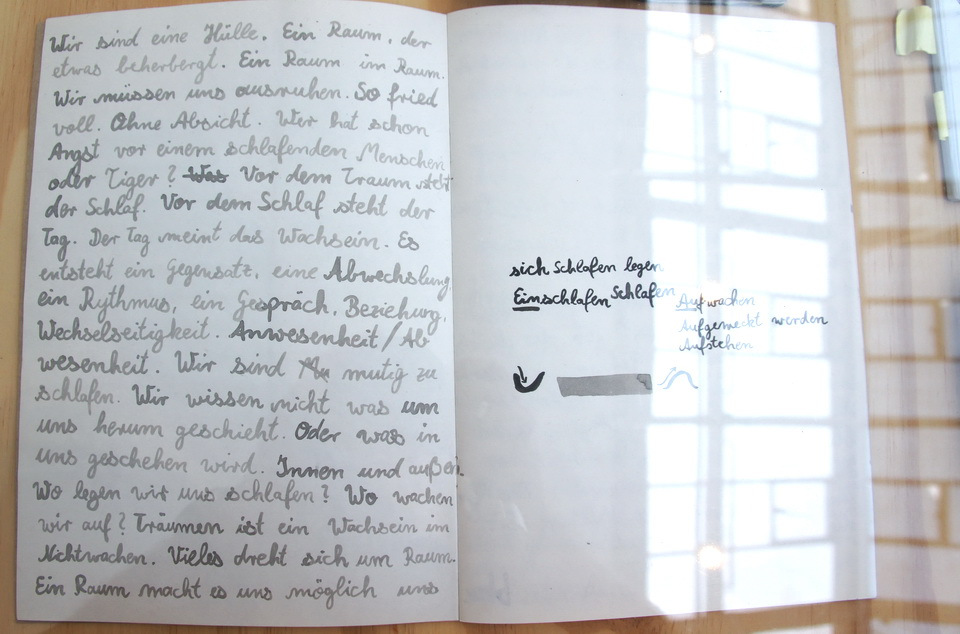 Wir sind eine Hülle. Ein Raum, der
etwas beherbergt. Ein Raum im Raum.
Wir müssen uns ausruhen. So fried
voll. Ohne Absicht. Wer hat schon
Angst vor einem schlafenden Menschen
oder Tiger? Was Vor dem Traum steht
der Schlaf. Vor dem Schlaf steht der
Tag. Der Tag meint das Wachsein. Es
entsteht ein Gegensatz, eine Abwechslung,
ein Rythmus, ein Gespräch, Beziehung,
Wechselseitigkeit. Anwesenheit/Ab
wesenheit. Wir sind mutig zu
schlafen. Wir wissen nicht was um
uns herum geschieht. Oder was in
uns geschehen wird. Innen und außen.
Wo legen wir uns schlafen? Wo wachen
wir auf? Träumen ist ein Wachsein im
Nichtwachen. Vieles dreht sich um Raum.
Ein Raum macht es uns möglich uns
sich schlafen legen
Einschlafen Schlafen Aufwachen
Aufgeweckt werden
Aufstehen